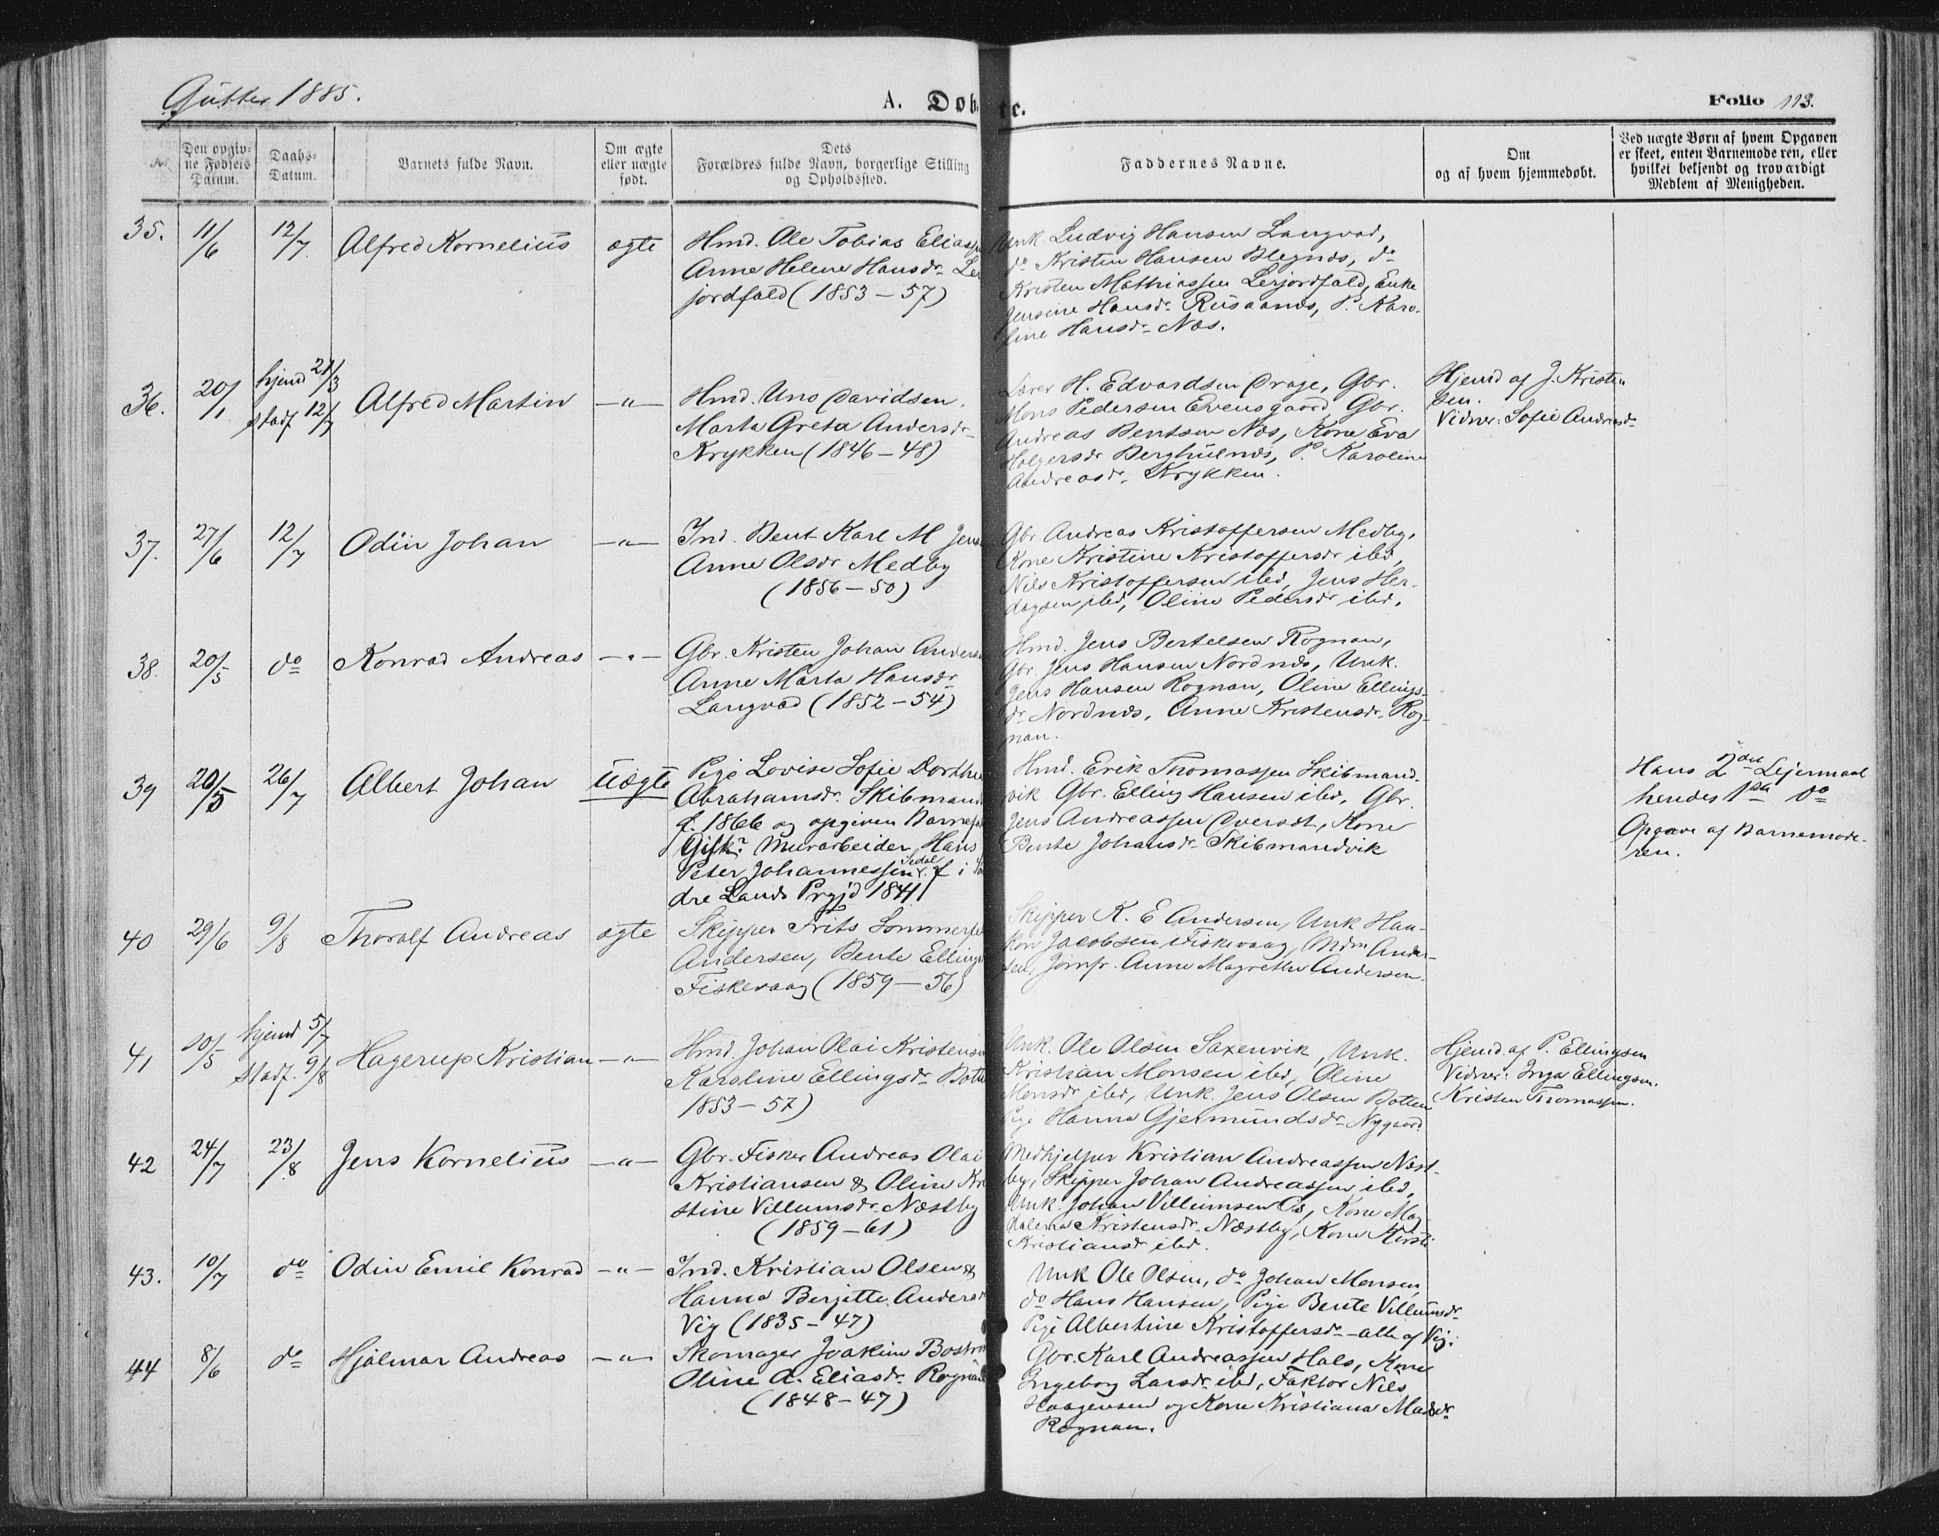 Gutter 1885.
A. Døbte.
Folio 113.
No.
Den opgivne Fødsels Datum.
Daabs-Datum.
Barnets fulde Navn.
Om ægte eller uægte født.
Dets Forældres fulde Navn, borgerlige Stilling og Opholdssted.
Faddernes Navne.
Om og af hvem hjemmedøbt.
Ved uægte Børn af hvem Opgaven er skeet, enten Barnemoderen, eller hvilket bekjendt og troværdigt Medlem af Menigheden.
35. 11/6 12/7 Alfred Kornelius ægte
Hmd. Ole Tobias Eliass
Anne Helene Hansdr. Ler
jordfald (1853 - 57)
Unk. Ludvig Hansen Langvad,
do Kristen Hansen Blegnæs, do
Kristen Mathiassen Lerjordfald, Enke
Jensine Hansdr. Rusaanæs, P. Karo-
line Hansdr. Næs.
36. 20/1 hjemd 21/3 stadf 12/7 Alfred Martin -"-
Hmd. Uno Davidsen.
Marta Greta Andersdr.
Krykken (1846 - 48)
Lærer H. Edvardsen Drage, Gbr.
Mons Pedersen Evensgaard Gbr.
Andreas Bentsen Næs, Kone Eva
Holgersdr. Berghulnæs, P. Karoline
Andreasdr. Krykken.
Hjemd af J. Kristen
sen.
Vidner: Sofie Andreasdr.
37. 27/6 12/7 Odin Johan -"-
Ind. Bent Karl M Jens
Anne Olsdr Medby
(1856 - 50)
Gbr Andreas Kristoffersen Medby,
Kone Kristine Kristoffersdr ibd,
Nils Kristoffersen ibd, Jens Her-
dagsen ibd, Oline Pedersdr ibd.
38. 20/5 do Konrad Andreas -"-
Gbr. Kristen Johan Anders
Anne Marta Hansdr.
Langvad (1852 - 54)
Hmd. Jens Bertelsen Rognan,
Gbr. Jens Hansen Nordnæs, Unk.
Jens Hansen Rognan, Oline Ellings-
dr. Nordnæs, Anne Kristensdr. Rog-
nan.
39 20/5 26/7 Albert Johan Uægte
Pige Lovise Sofie Dorthea
Abrahamsdr. Skibmand
f. 1866 og opgiven Barnef
Gift? Murarbeider Hans
Peter Johannessen f i
dre Lands Prgjd 1841
Hmd. Erik Thomassen Skibmand-
vik Gbr. Elling Hansen ibd, Gbr.
Jens Andreassen Dverset, Kone
Bente Johansdr. Skibmandvik
Hans 2den Lejermaal
hendes 1ste do
Opgave af Barnemode-
ren.
40 29/6 9/8 Thoralf Andreas ægte
Skipper Frits Sommerfe
Andersen, Bente Ellings
Fiskevaag (1859 - 56)
Skipper K. E Andersen, Unk Haa-
kon Jacobsen, Fiskevaag, Mdm Ander-
sen, Jomfr. Anne Magrethe Andersen.
41 10/5 hjemd 5/7 stadf. 9/8 Hagerup Kristian -"-
Hmd. Johan Olai Kristensen
Karoline Ellingsdr. Botte
1853 - 57)
Unk. Ole Olsen Saxenvik, Unk.
Kristian Monsen ibd, Oline
Monsdr ibd, Unk. Jens Olsen Botten
Pige Hanna Gjermundsdr. Nygaard.
Hjemd. af P. Ellingsen
Vidner: Inga Ellingsen.
Kristen Thomassen.
42 24/7 23/8 Jens Kornelius -"-
Gbr. Fisker Andreas Olai
Kristiansen & Oline Kri
stine Villumsdr. Næstby
(1859 - 61)
Medhjelper Kristian Andreassen Næst-
by, Skipper Johan Andreassen ibd,
Unk. Johan Villumsen Os, Kone Mag-
dalena Kristensdr. Næstby, Kone Kirsti
Kristiansdr ibd.
43. 10/7 do Odin Emil Konrad -"-
Ind. Kristian Olsen &
Hanna Birgitte Andersd
Vig (1835 - 47)
Unk Ole Olsen, do Johan Monsen,
do Hans Hansen, Pige Bente Villumsdr
Pige Albertine Kristoffersdr. - alle af Vig.
44 8/6 do Hjalmar Andreas -"-
Skomager Joakim Bostrøm
Oline A. Eliasdr. Rognan
(1848 - 47)
Gbr. Karl Andreassen Hals, Kone
Ingeborg Larsdr. ibd, Faktor Nils
Haagensen og Kone Kristiana Madsdr
Rognan.